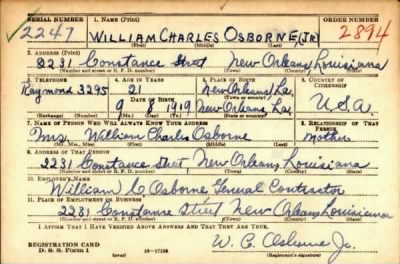 SERIAL NUMBER 1. NAME (Print) ORDER NUMBER
2247 WILLIAM CHARLES OSBORNE, JR. 2894
(First) (Middle) (Last)
2. ADDRESS (Print)
2231 Constance Street New Orleans Louisiana
(Number and street or R. F. D. number) (Town) (County) (State)
3. TELEPHONE 4. AGE IN YEARS 5. PLACE OF BIRTH 6. COUNTRY OF CITIZENSHIP
Raymond 3295 21 New Orleans La.
DATE OF BIRTH (Town or county)
9 8 1919 New Orleans La. U.S.A.
(Exchange) (Number) (Mo.) (Day) (Yr.) (State or country)
7. NAME OF PERSON WHO WILL ALWAYS KNOW YOUR ADDRESS 8. RELATIONSHIP OF THAT PERSON
Mrs. William Charles Osborne Mother
(Mr., Mrs., Miss) (First) (Middle) (Last)
9. ADDRESS OF THAT PERSON
2231 Constance Street New Orleans Louisiana
(Number and street or R. F. D. number) (Town) (County) (State)
10. EMPLOYER'S NAME
William C Osborne General Contractor
11. PLACE OF EMPLOYMENT OR BUSINESS
2231 Constance Street New Orleans Louisiana
(Number and street or R. F. D. number) (Town) (County) (State)
I AFFIRM THAT I HAVE VERIFIED ABOVE ANSWERS AND THAT THEY ARE TRUE.
REGISTRATION CARD
D. S. S. Form 1 16-17105 W. C. Osborne Jr.
(Registrant's signature)